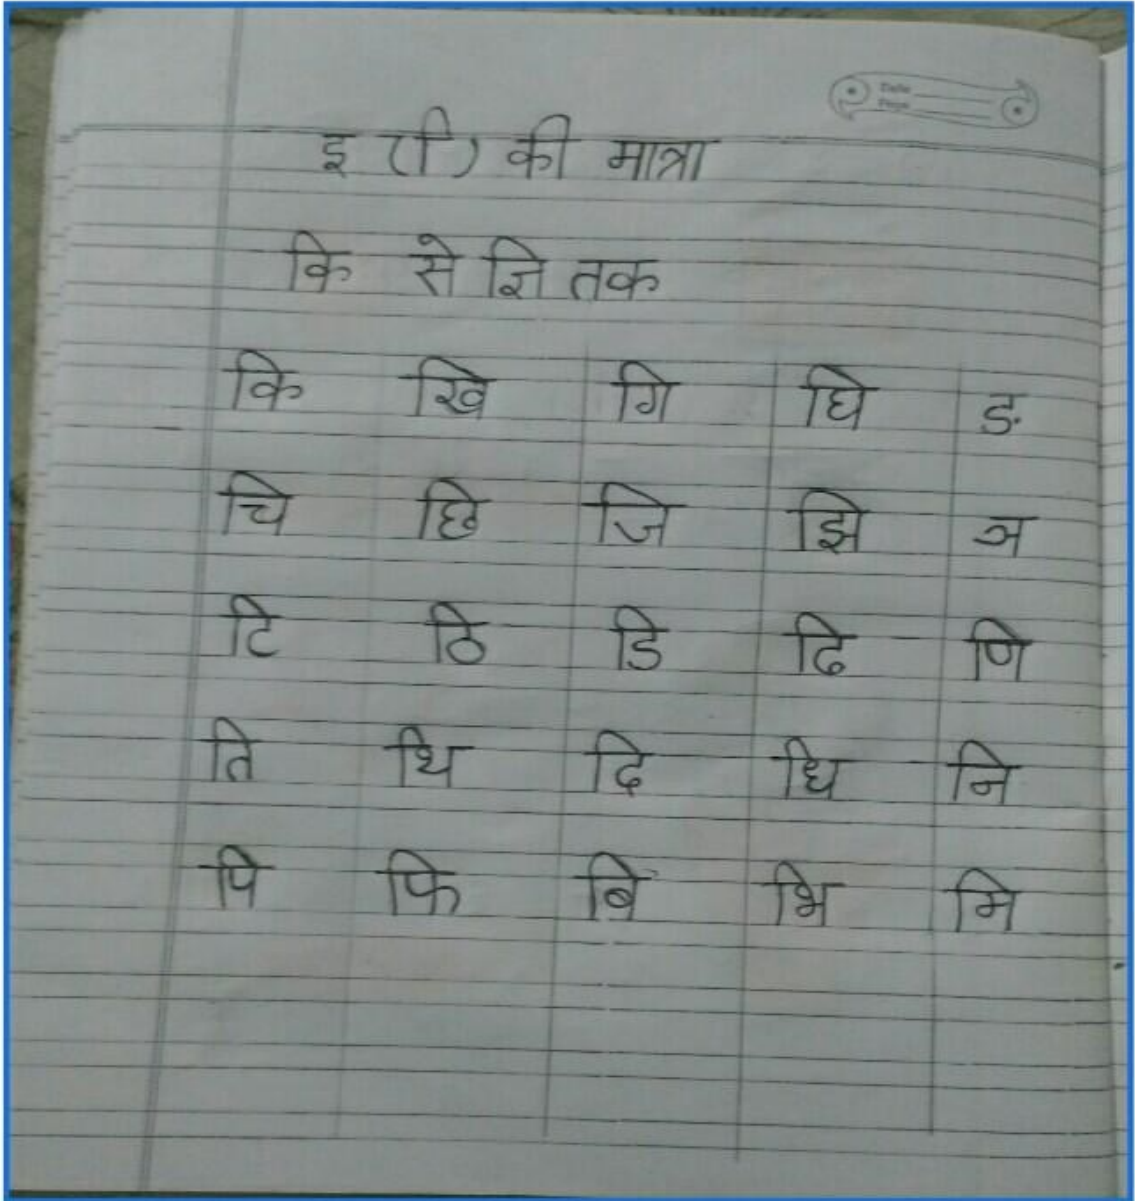 Date
Page
इ (ि) की मात्रा
कि से ज्ञि तक
कि खि गि घि ङ
चि छि जि झि ञ
टि ठि डि ढि णि
ति थि दि धि नि
पि फि बि भि मि